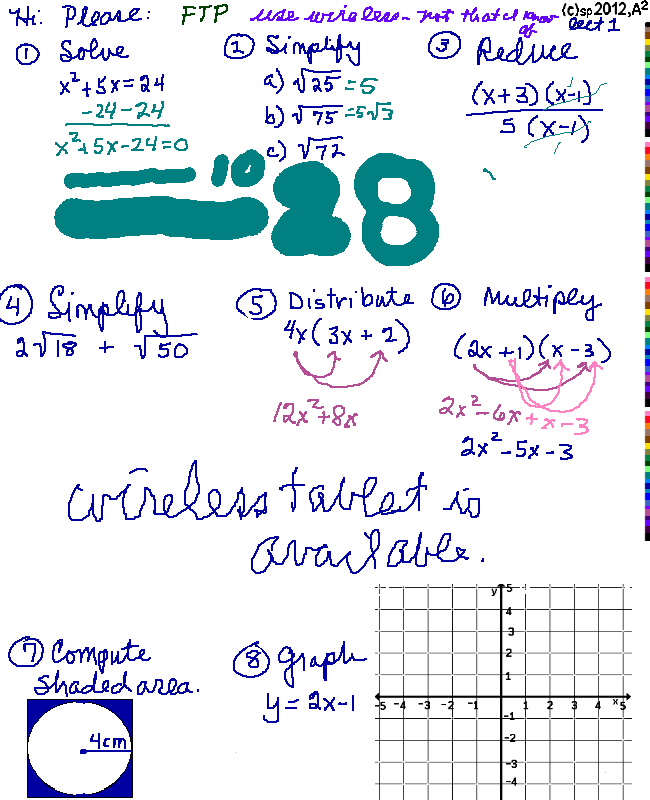 Hi: Please: FTP use wireless - not that I know of (c)sp2012,A²
Lect 1
① Solve
x²+5x=24
-24 -24
x²+5x-24=0
② Simplify
a) √25 =5
b) √75 =5√3
c) √72
③ Reduce
(x+3)(x-1)
5 (x-1)
10
28
④ Simplify
2√18 + √50
⑤ Distribute
4x(3x+2)
12x²+8x
⑥ Multiply
(2x+1)(x-3)
2x²-6x+x-3
2x²-5x-3
wireless tablet is
available.
⑦ Compute
shaded area.
4cm
⑧ Graph
y=2x-1
y 5
4
3
2
1
-5 -4 -3 -2 -1 1 2 3 4 x 5
-1
-2
-3
-4